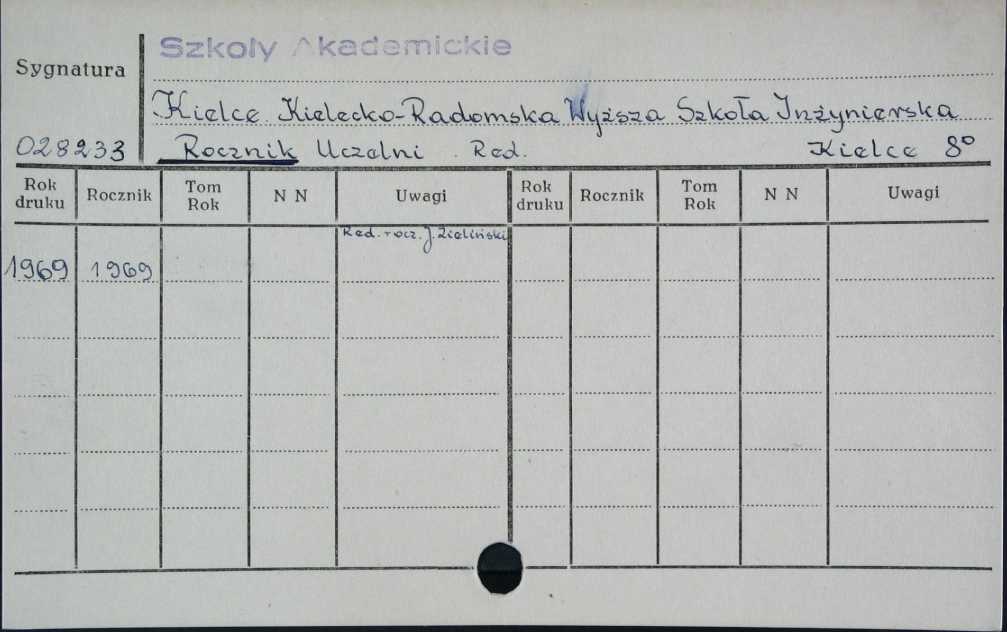 Szkoły Akademickie
Sygnatura
Kielce Kielecko-Radomska Wyższa Szkoła Inżynierska
028233 Rocznik Uczelni . Red. Kielce 8°
Rok druku Rocznik Tom Rok N N Uwagi Rok druku Rocznik Tom Rok N N Uwagi
Red. rocz. J. Zieliński
1969 1969